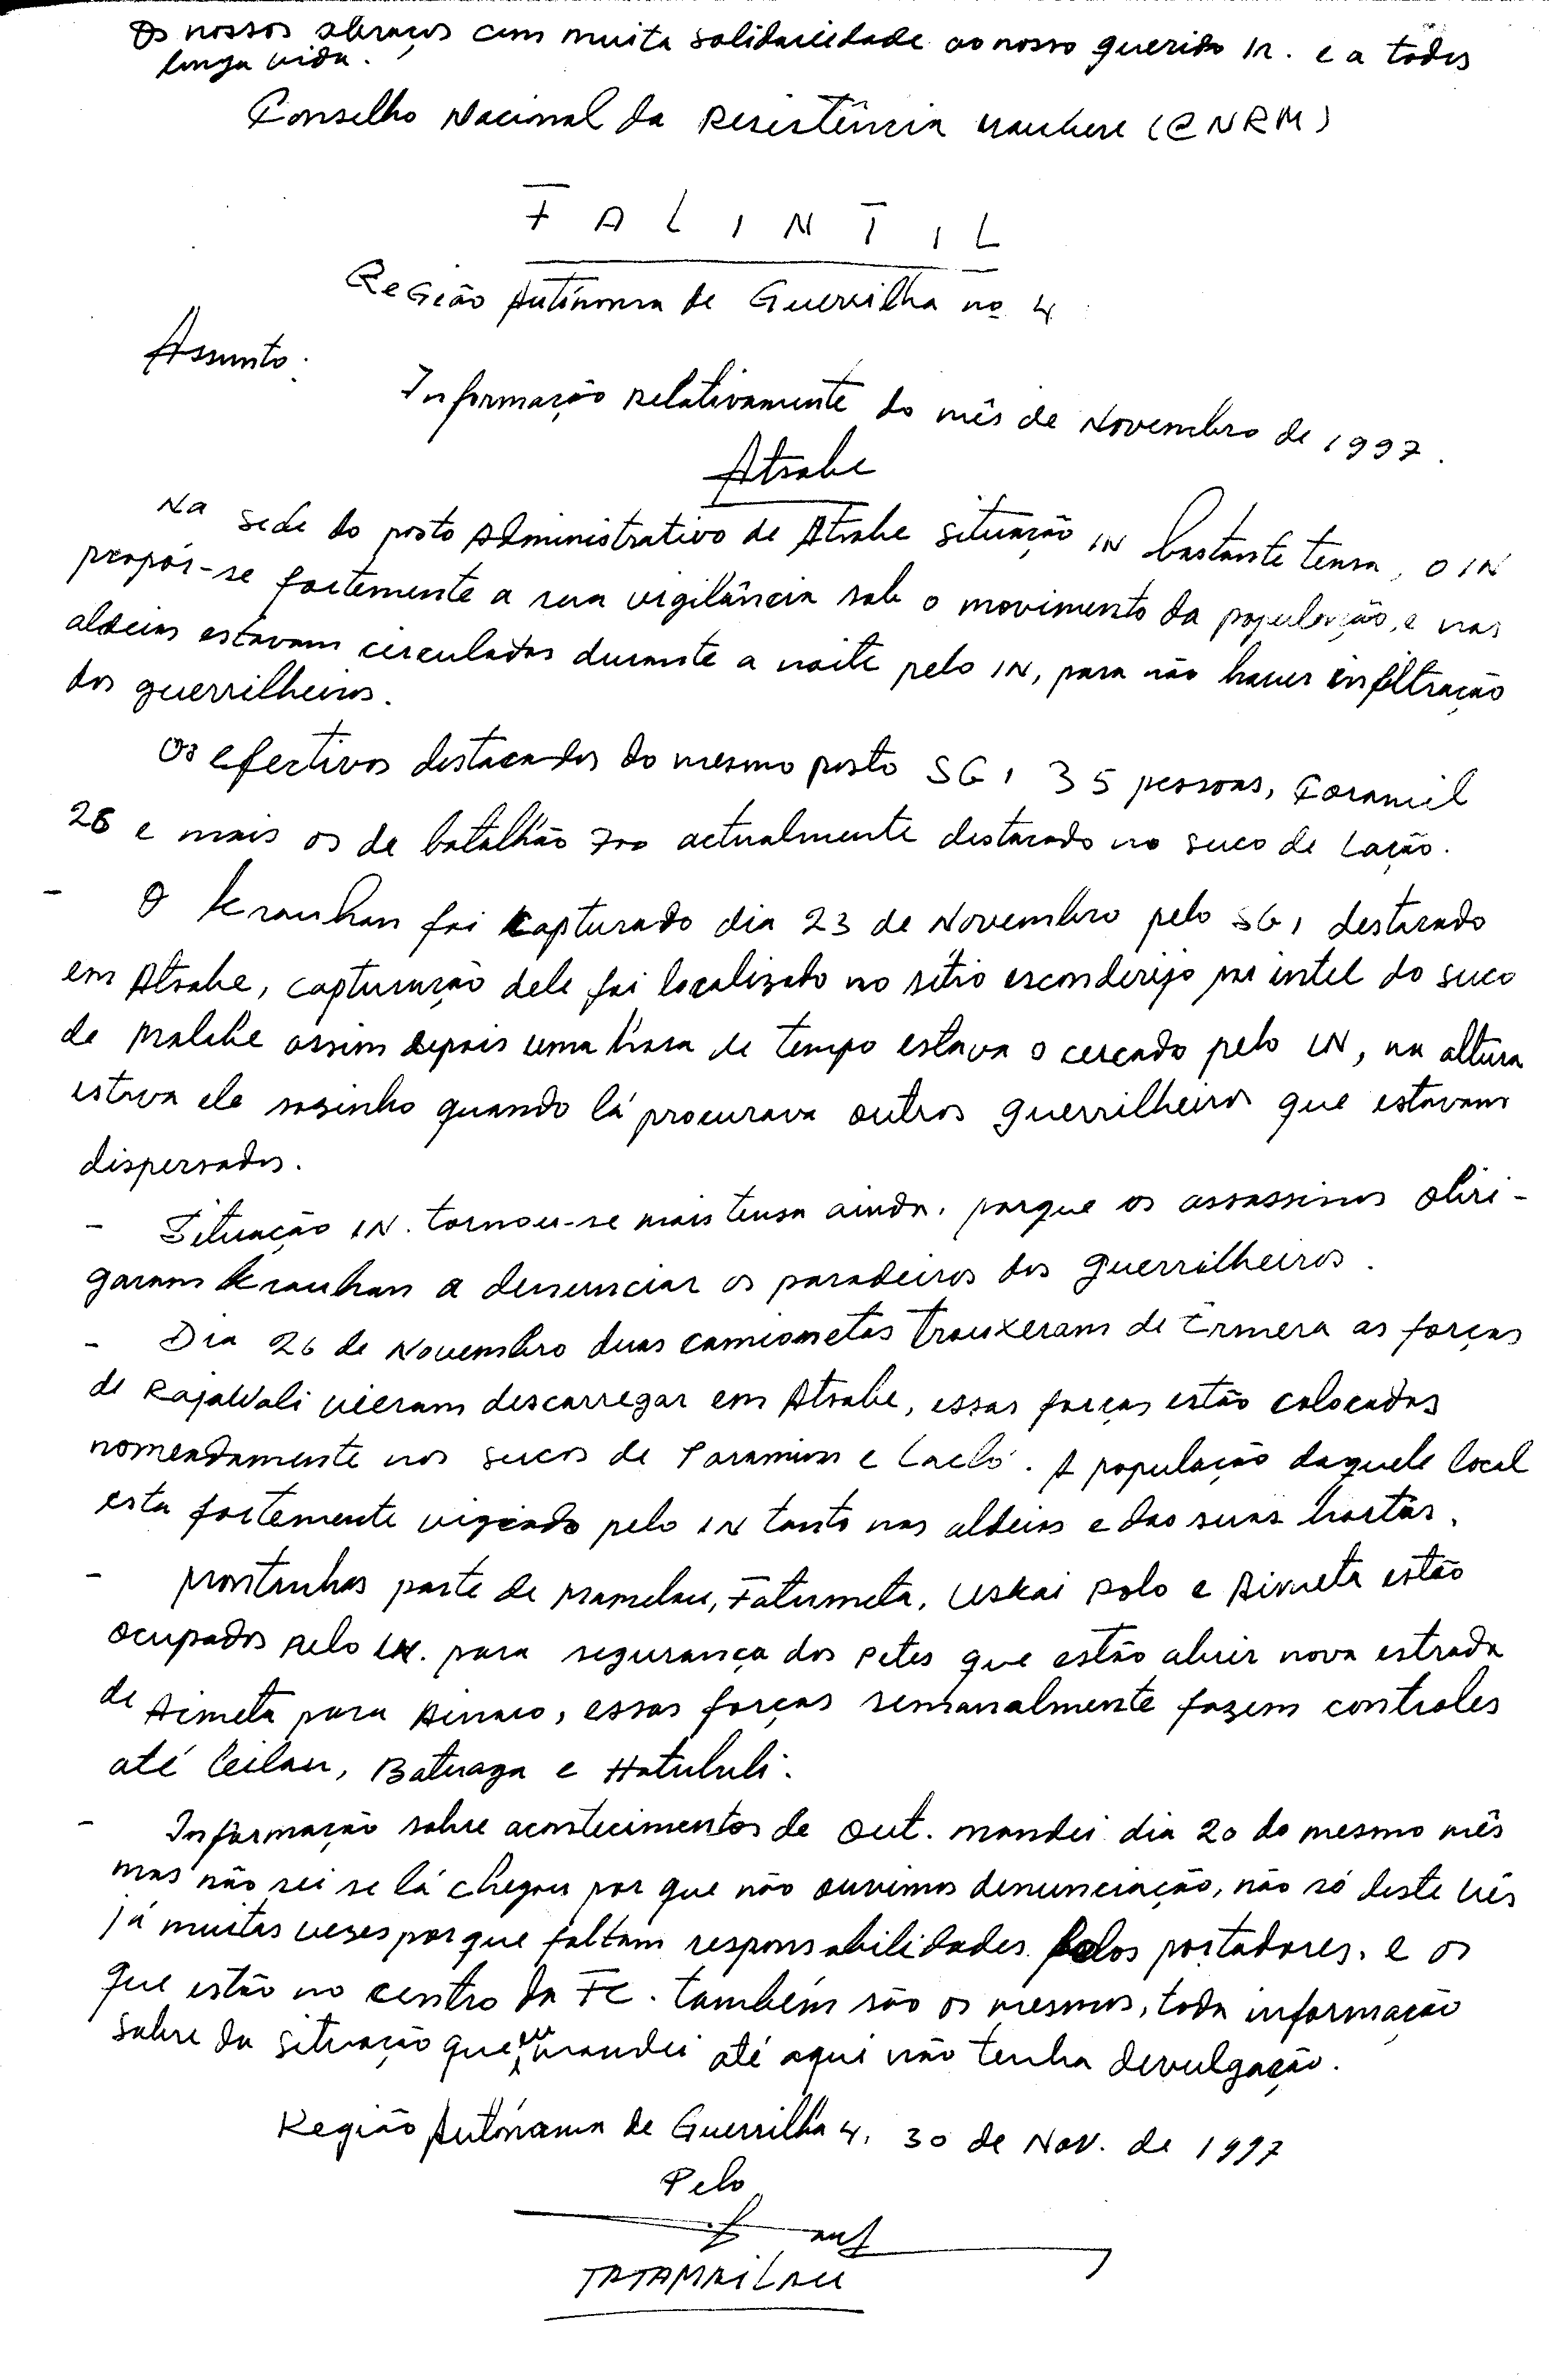 Os nossos abraços com muita solidariedade ao nosso querido Ir. e a todos
longa vida.
Conselho Nacional da Resistência Maubere (CNRM)
FALINTIL
Região Autónoma de Guerrilha nº 4
Assunto:
Informação relativamente do mês de Novembro de 1997.
Atsabe
Na sede do posto Administrativo de Atsabe situação IN bastante tensa, o IN
propôs-se fortemente a sua vigilância sob o movimento da população, e nas
aldeias estavam circuladas durante a noite pelo IN, para não haver infiltração
dos guerrilheiros.
Os efectivos destacados do mesmo posto SGI 35 pessoas, Foramil
26 e mais os de batalhão 700 actualmente destacado no suco de Lação.
- O Krauhan foi capturado dia 23 de Novembro pelo SGI destacado
em Atsabe, capturação dele foi localizado no sítio esconderijo por intel do suco
de Malabe assim depois uma hora de tempo estava o cercado pelo IN, na altura
estava ele sozinho quando lá procurava outros guerrilheiros que estavam
dispersados.
- Situação IN. tornou-se mais tensa ainda. porque os assassinos obri-
garam Krauhan a denunciar os paradeiros dos guerrilheiros.
- Dia 26 de Novembro duas camionetas trouxeram de Ermera as forças
de RajaWali vieram descarregar em Atsabe, essas forças estão colocadas
nomeadamente nos sucos de Paramin e Lacló. A população daquele local
esta fortemente vigiado pelo IN tanto nas aldeias e das suas hortas.
- Montanhas parte de Ramelau, Fatumeta, Uskai Rolo e Aimeta estão
ocupados pelo IN. para segurança dos Petes que estão abrir nova estrada
de Aimeta para Ainaro, essas forças semanalmente fazem controles
até Leilau, Baturaga e Hatubuli.
- Informação sobre acontecimentos de Out. mandei dia 20 do mesmo mês
mas não sei se lá chegou por que não ouvimos denunciação, não só deste vês
já muitas vezes por que faltam responsabilidades pelos portadores. e os
que estão no centro da FC. também são os mesmos, toda informação
sobre da situação que eu mandei até aqui não tenha devulgação.
Região Autónoma de Guerrilha 4, 30 de Nov. de 1997
Pelo
TATAMAILAU